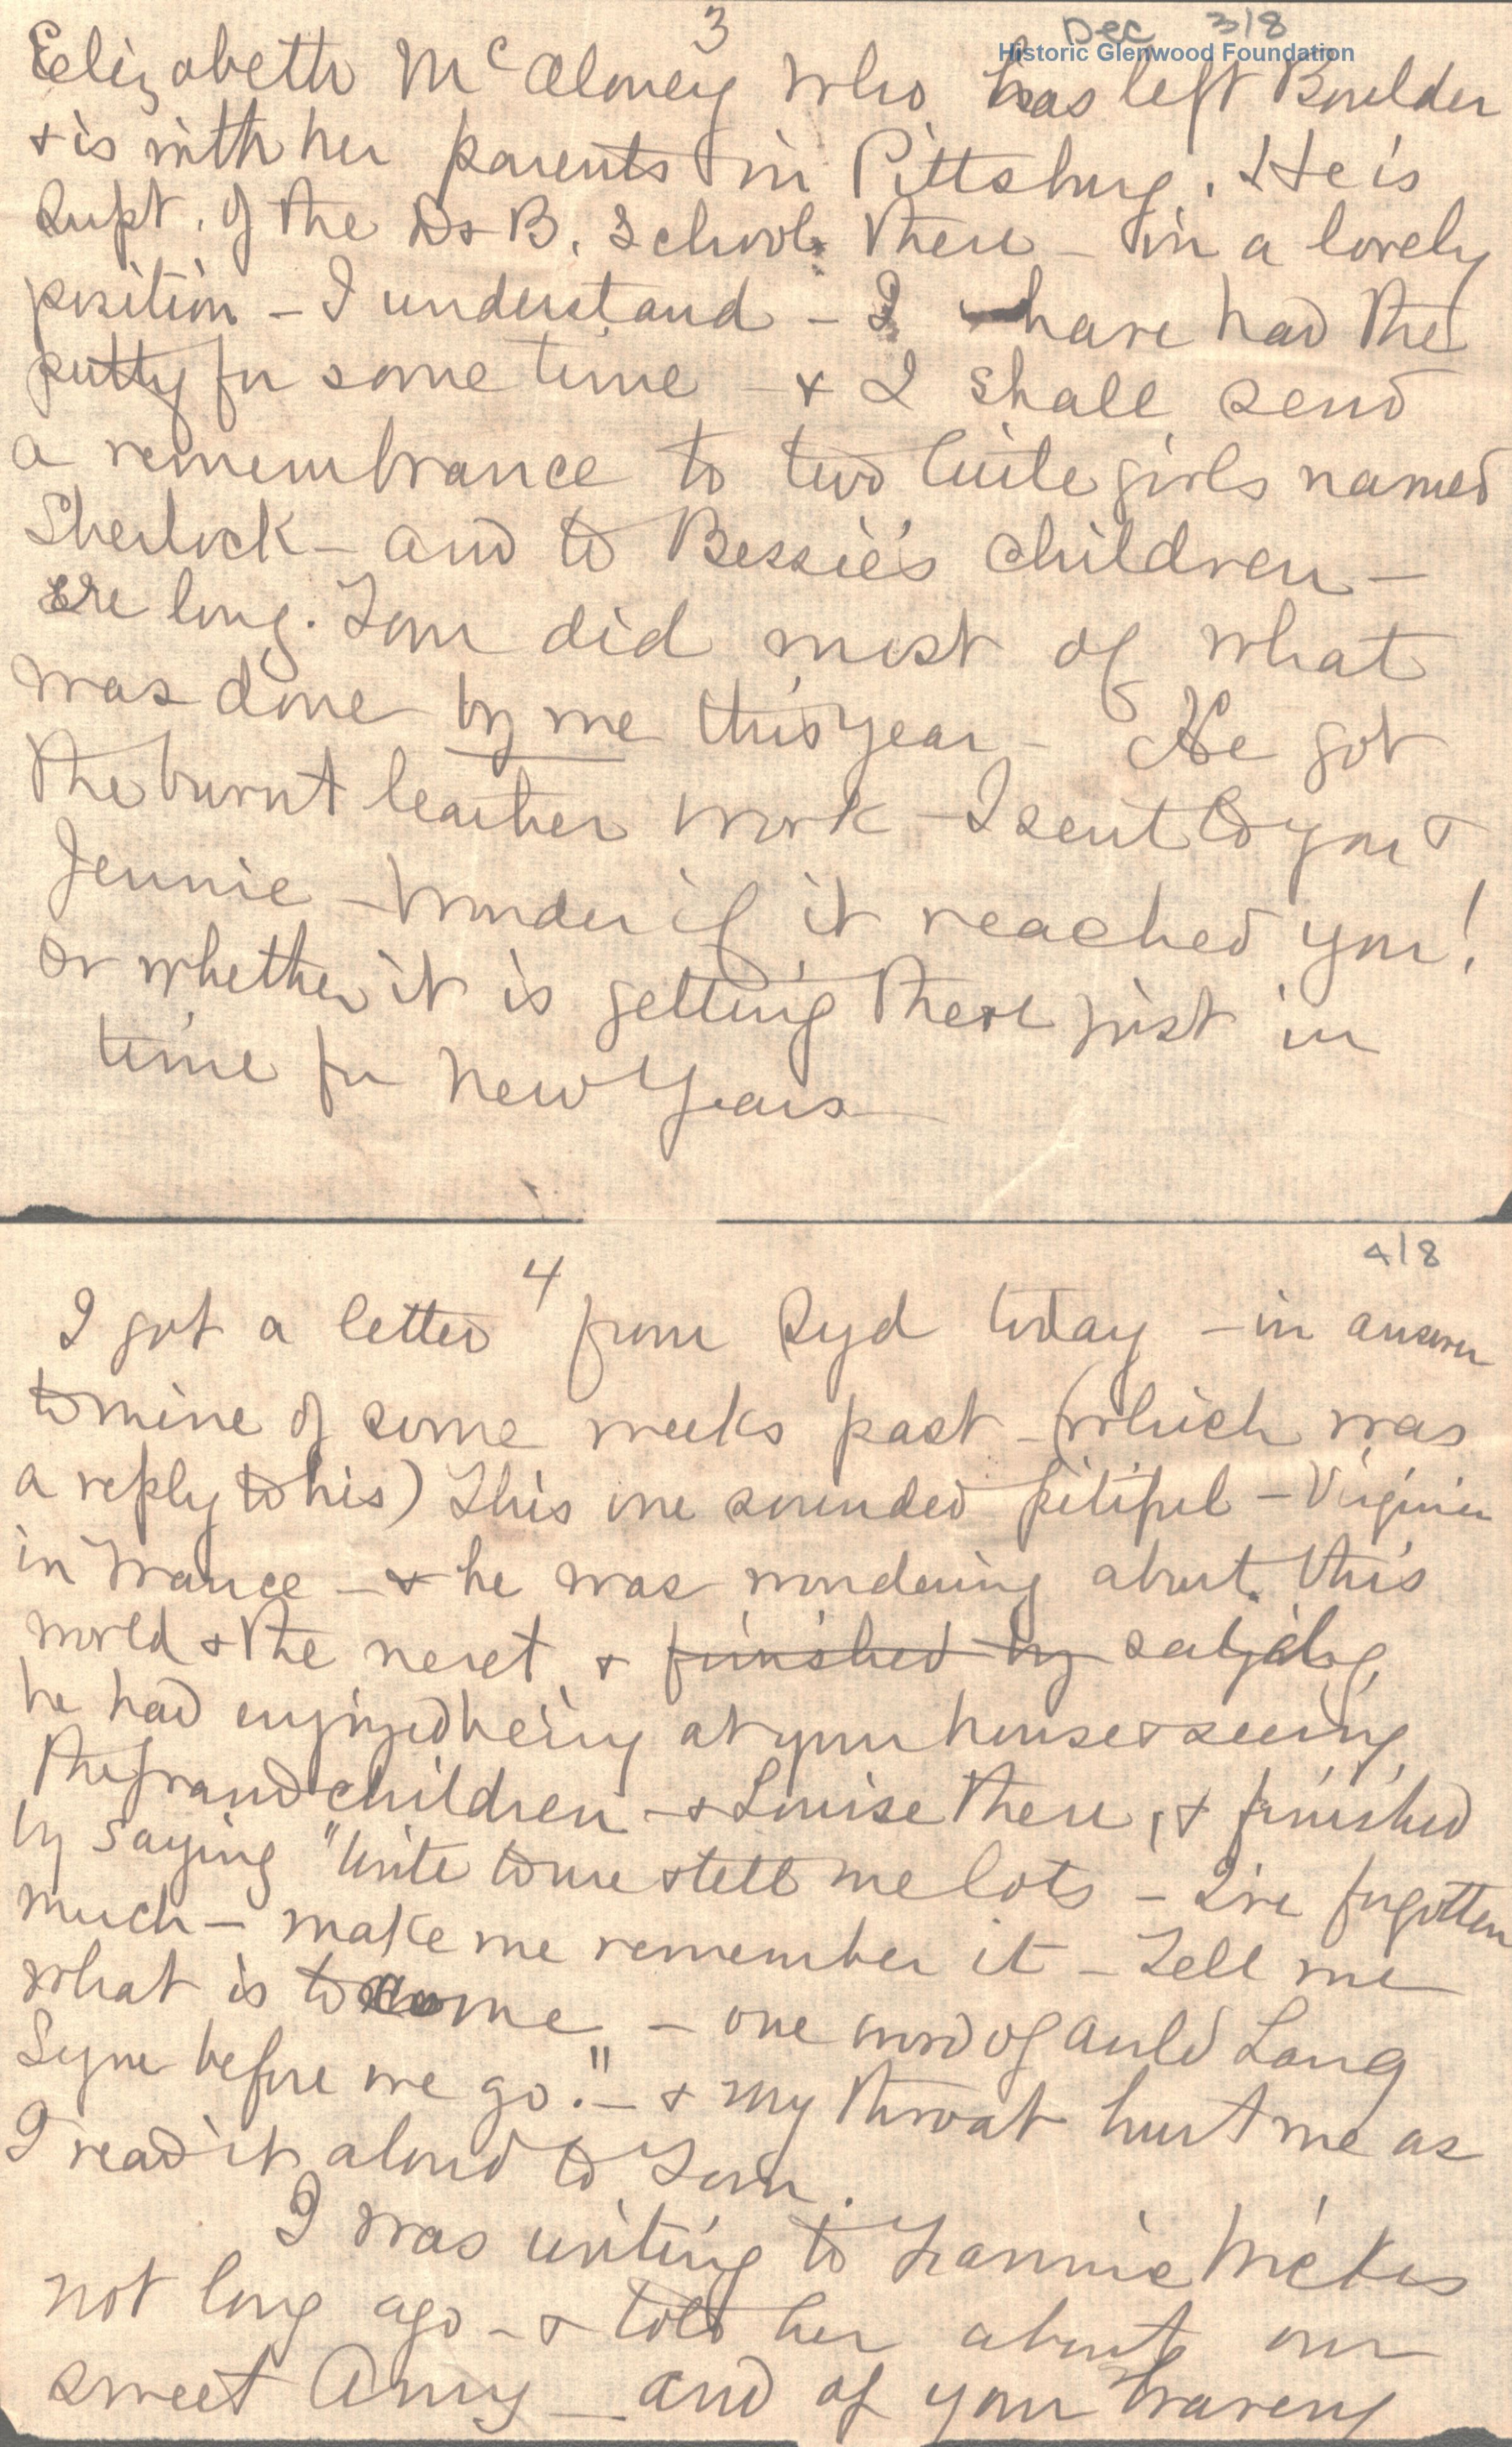 3
Dec 3/8
Historic Glenwood Foundation
Elizabeth McAloney who has left Boulder
+ is with her parents in Pittsburg. He is
Supt. of the D + B. School there – in a lovely
position – I understand – I have had the
putty for some time – + I shall send
a remembrance to two little girls named
Sherlock – and to Bessie's children –
ere long. Tom did most of what
was done by me this year – He got
the burnt leather work – I sent to you +
Jennie – Wonder if it reached you!
or whether it is getting there just in
time for New Years
4/8
4
I got a letter from Syd today – in answer
to mine of some weeks past – (which was
a reply to his) This one sounded pitiful – Virginia
in France – + he was wondering about this
world + the next, + finished by saying
he had enjoyed being at your house + seeing
the grandchildren – + Louise there, + finished
by saying "Write to me + tell me lots – I've forgotten
much – make me remember it – Tell me
what is to come – one word of Auld Lang
Syne before we go." – + my throat hurt me as
I read it aloud to Tom.
I was writing to Fannie Wickes
not long ago – + told her about our
sweet Amy – and of your bravery